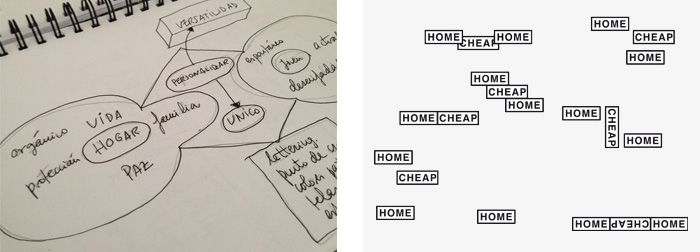 VERSATILIDAD
PERSONALIZAR
espontáneo
Joven
orgánico VIDA familia
protección HOGAR
PAZ
UNICO
lettering
punto de
HOME
CHEAP
HOME
HOME
CHEAP
HOME
HOME
CHEAP
HOME
HOME CHEAP
HOME
CHEAP
HOME
HOME
CHEAP
HOME
HOME
HOME CHEAP HOME